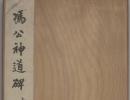 馮公神道碑